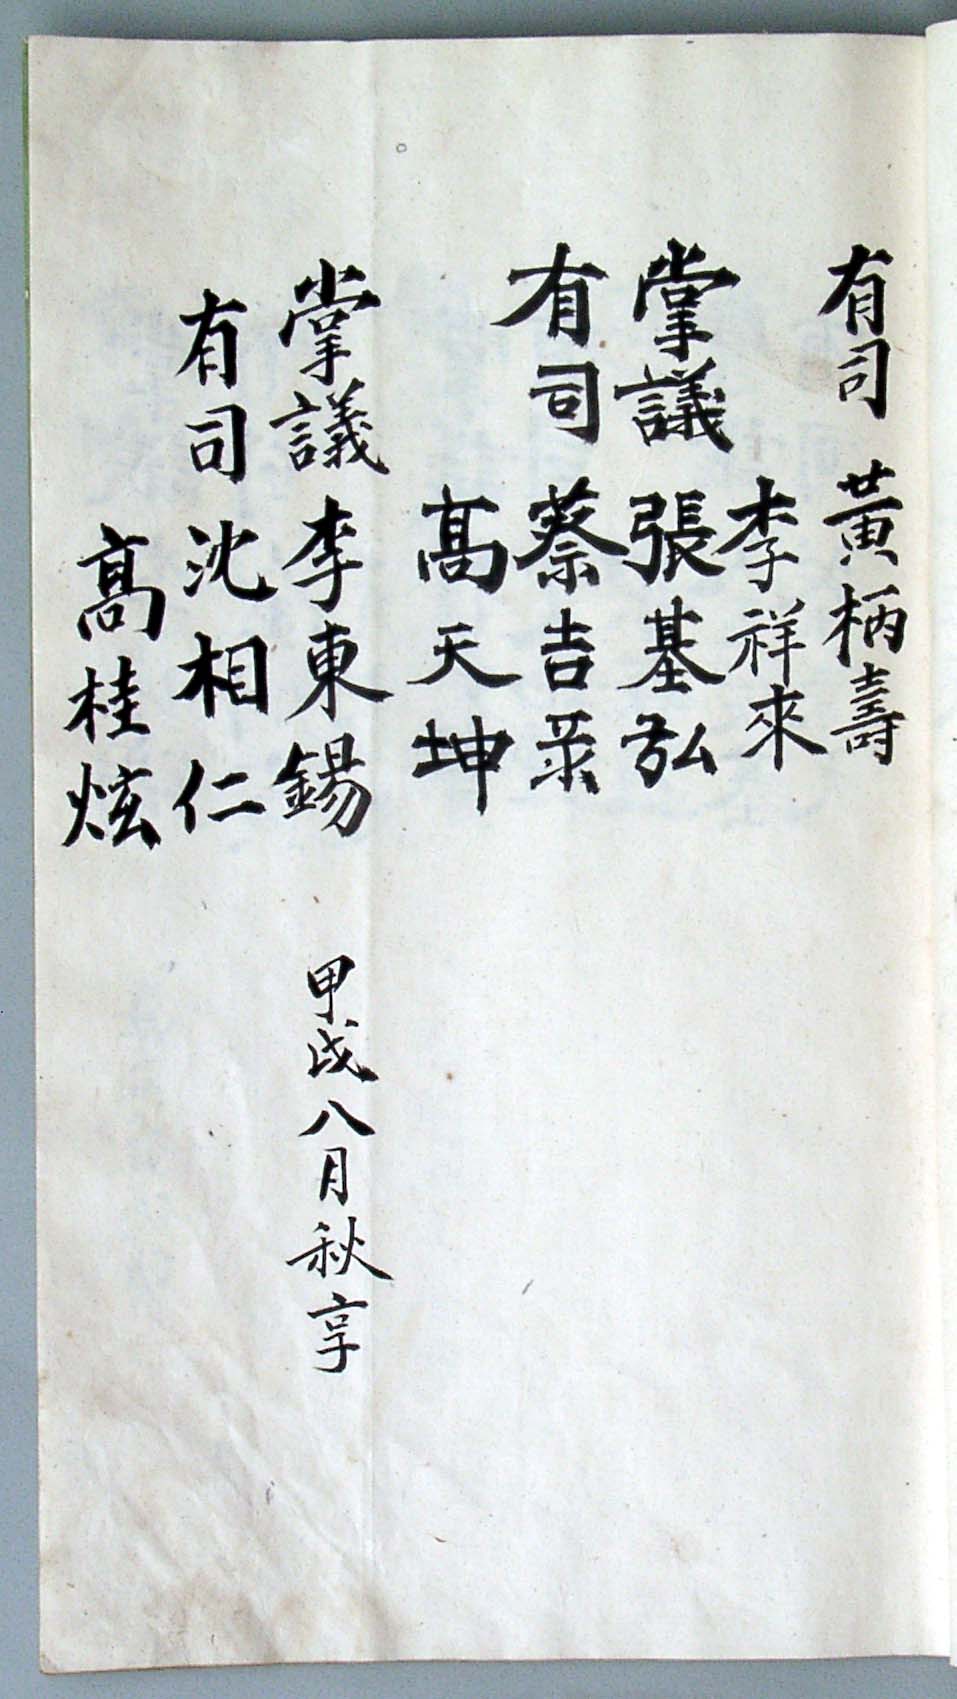 有司 黃柄壽
李祥來
掌議 張基弘
有司 蔡吉
髙天坤
掌議 李東錫 甲戌八月秋享
有司 沈相仁
髙桂炫